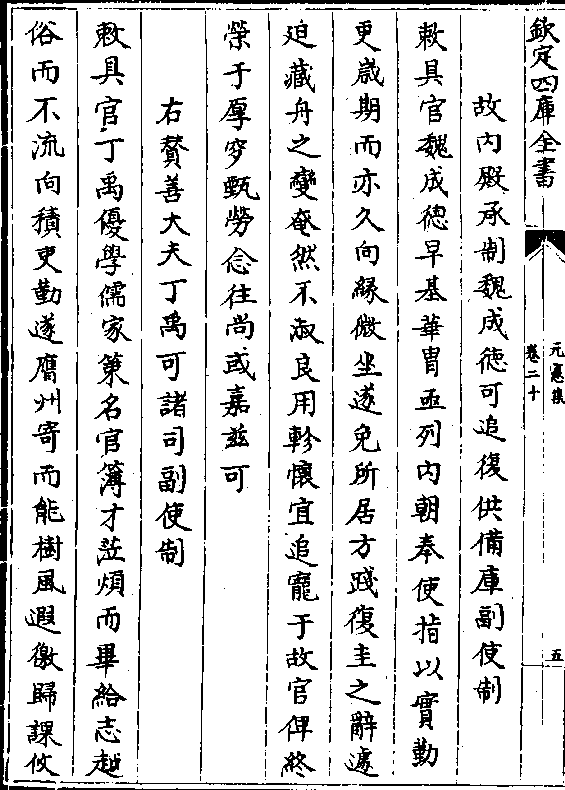 欽定四庫全書
元憲集
卷二十
五
故内殿承制魏成徳可追復供備庫副使制
敕具官魏成徳早基華胄亟列内朝奉使指以實勤
更嵗期而亦久向縁微坐遂免所居方踐復圭之辭遽
迫藏舟之變奄然不淑良用軫懐宜追寵于故官俾終
榮于厚穸甄勞念往尚或嘉兹可
右贊善大夫丁禹可諸司副使制
敕具官丁禹優學儒家第名官簿才涖煩而畢給志越
俗而不流向積吏勤遂膺州寄而能樹風遐徼歸課攸